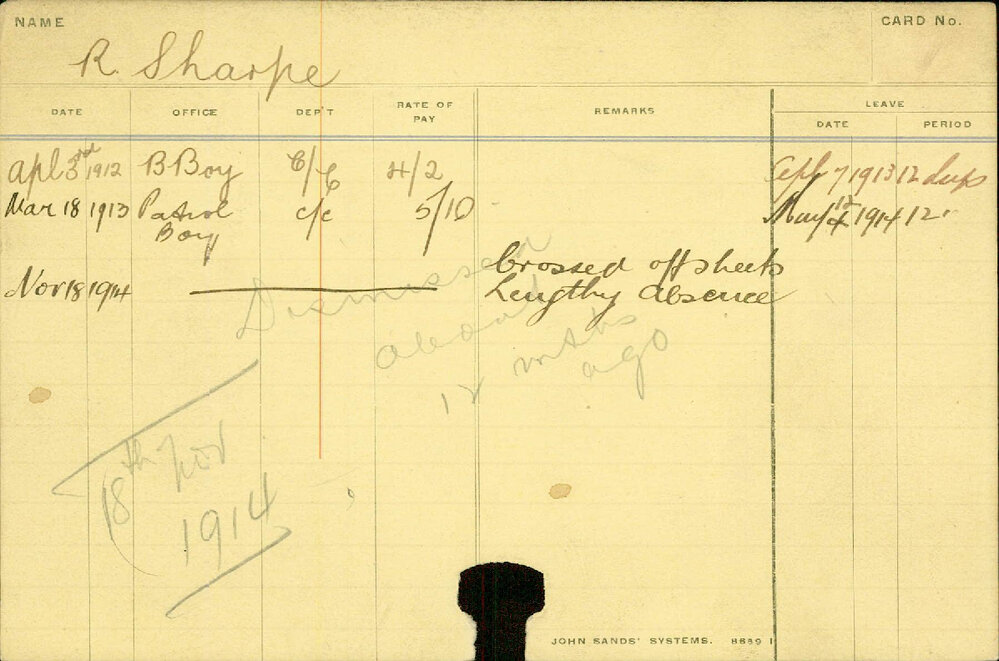 NAME
CARD No.
R. Sharpe
DATE OFFICE DEP'T RATE OF PAY REMARKS LEAVE
DATE PERIOD
Apl 3rd 1912 B Boy C/C 4/2 7 1913 12 days
Mar 18 1913 Patrol C/C 5/10 May 1914 12
Boy
Crossed off sheets
Nov 18 1914 Lengthy absence
Dismissed
about
12 mths
ago
18th Nov
1914
JOHN SANDS' SYSTEMS. 8689